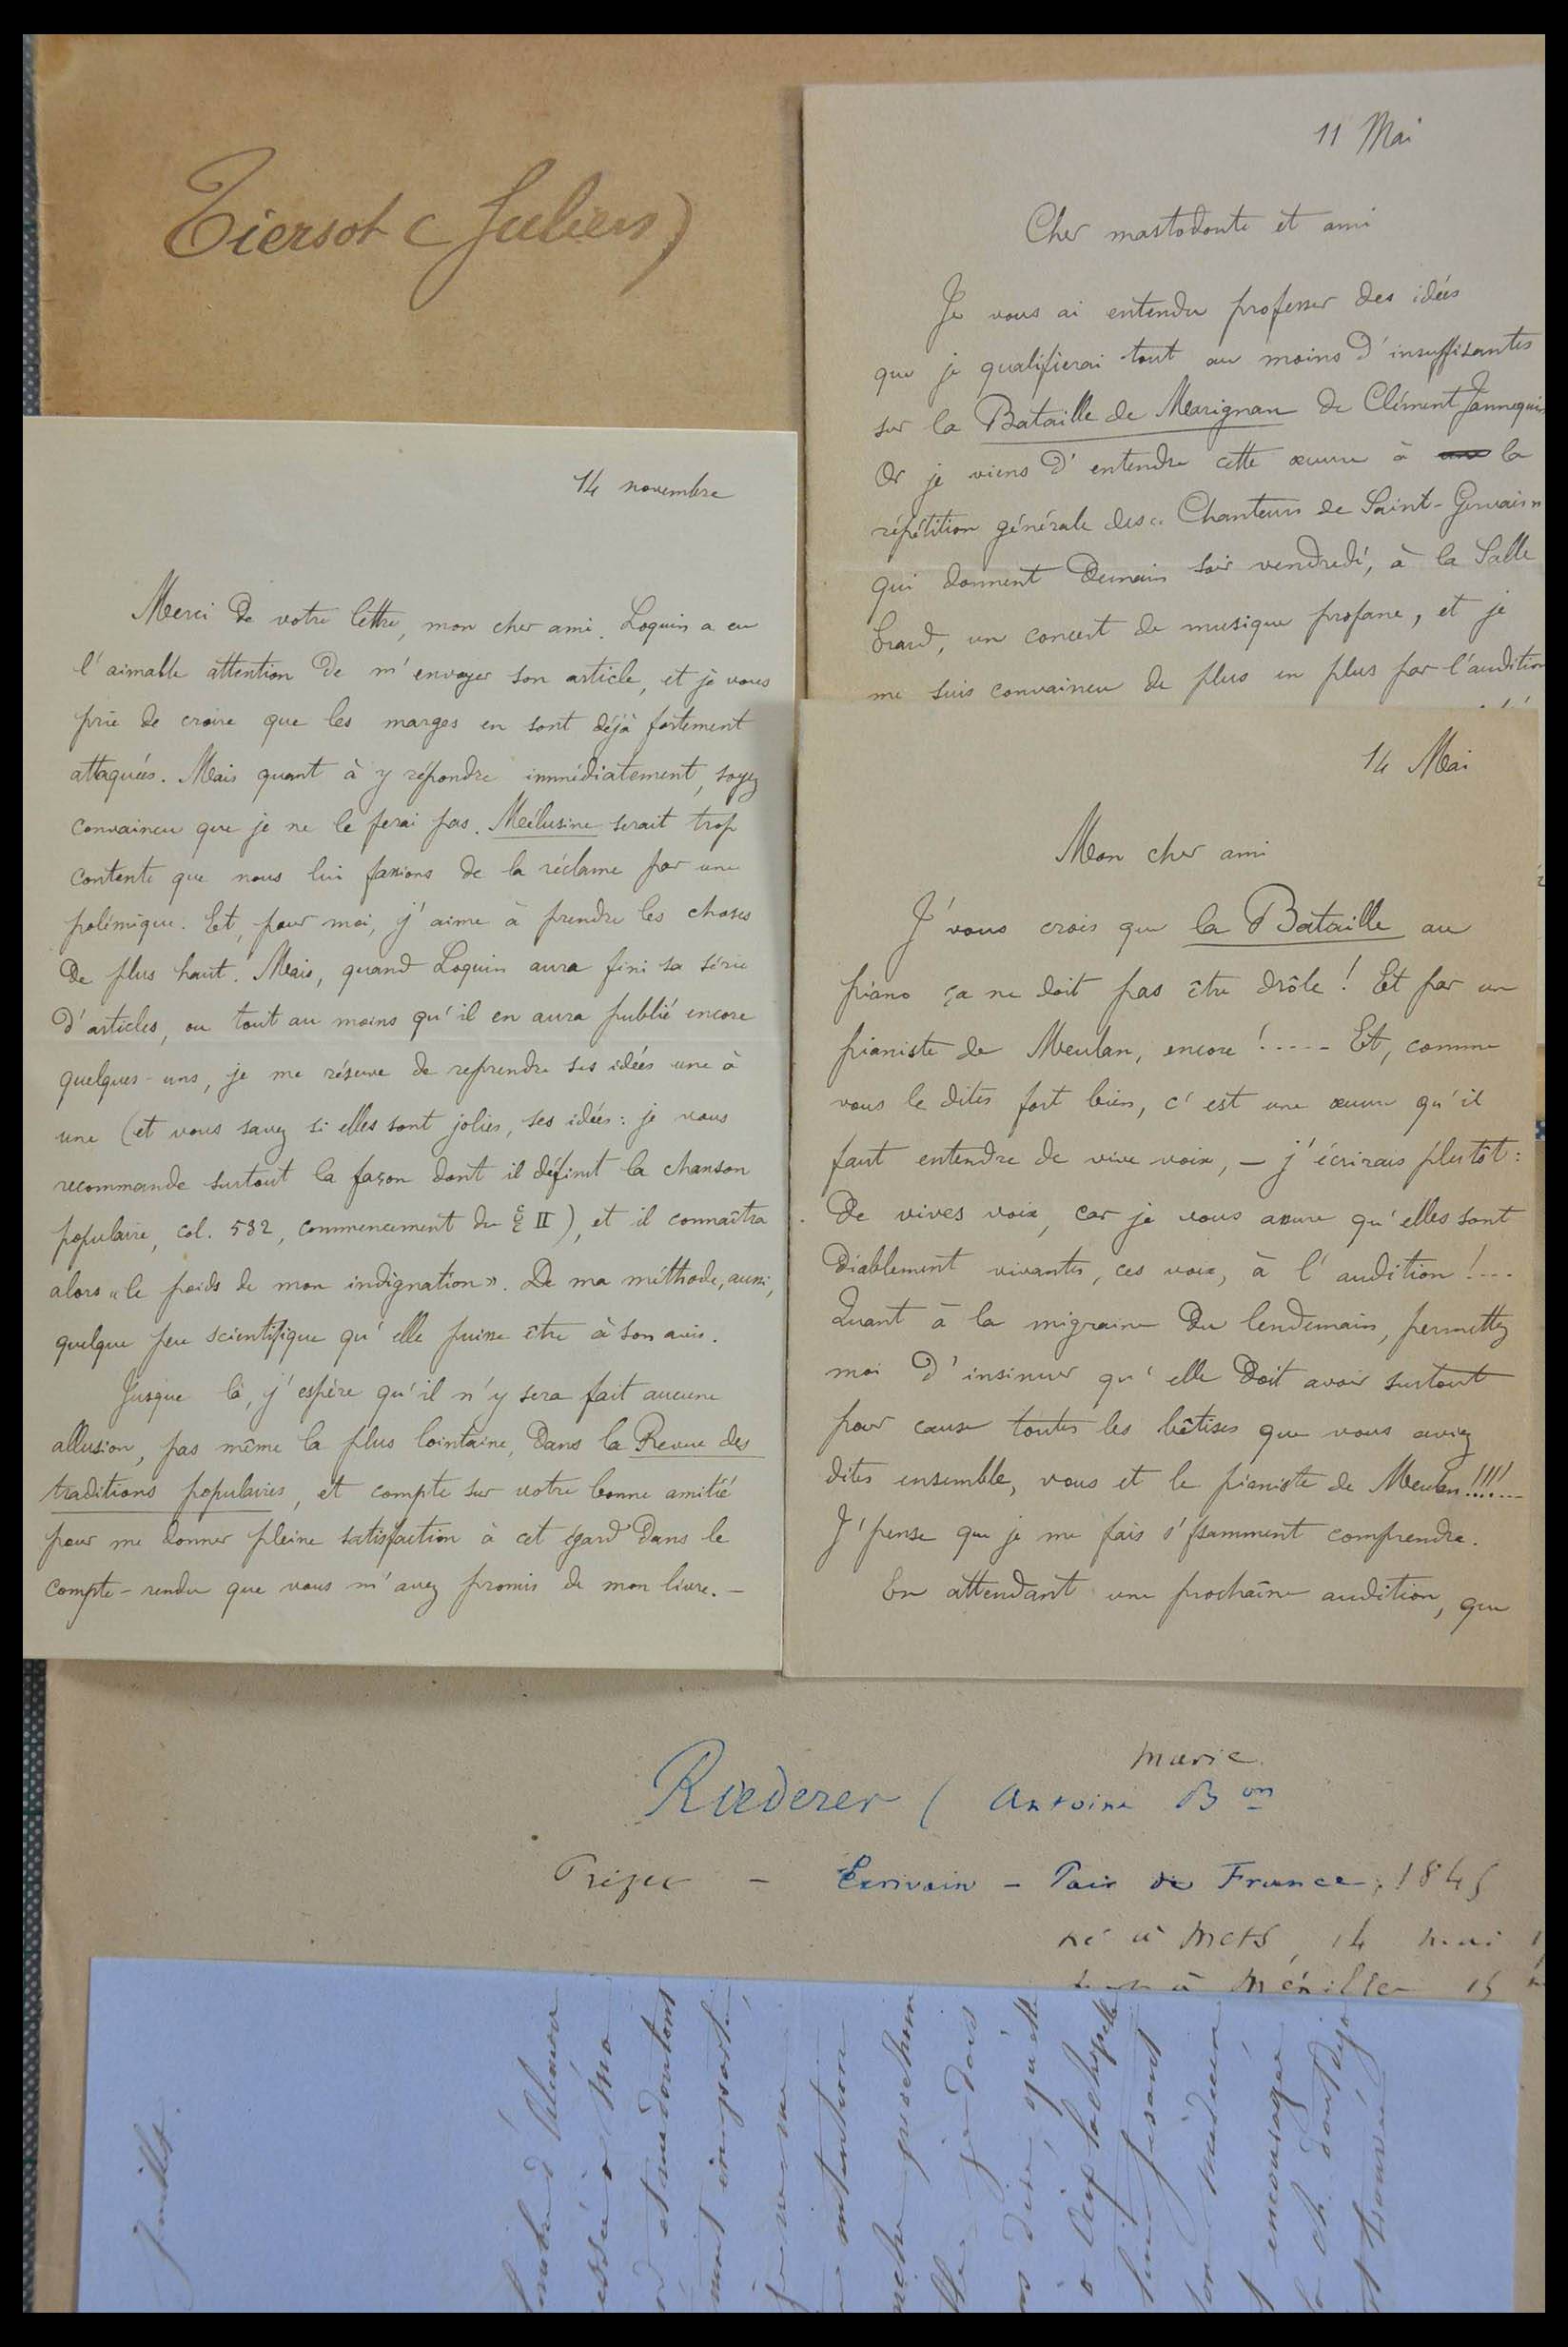 Tiersot (Julien)
11 Mai
Cher mastodonte et ami
Je vous ai entendu professer des idées
que je qualifierai tout au moins d'insuffisantes
sur la Bataille de Marignan de Clément Jannequin
Or je viens d'entendre cette œuvre à la
répétition générale des « Chanteurs de Saint-Gervais »
qui donnent demain soir vendredi, à la Salle
Erard, un concert de musique profane, et je
me suis convaincu de plus en plus par l'audition
14 novembre
Merci de votre lettre, mon cher ami. Loquin a eu
l'aimable attention de m'envoyer son article, et je vous
prie de croire que les marges en sont déjà fortement
attaquées. Mais quant à y répondre immédiatement, soyez
convaincu que je ne le ferai pas. Mélusine serait trop
contente que nous lui fassions de la réclame par une
polémique. Et, pour moi, j'aime à prendre les choses
de plus haut. Mais, quand Loquin aura fini sa série
d'articles, ou tout au moins qu'il en aura publié encore
quelques-uns, je me réserve de reprendre ses idées une à
une (et vous savez si elles sont jolies, ses idées : je vous
recommande surtout la façon dont il définit la chanson
populaire, col. 532, commencement du § II), et il connaîtra
alors « le poids de mon indignation ». De ma méthode, aussi,
quelque peu scientifique qu'elle puisse être à son avis.
Jusque là, j'espère qu'il n'y sera fait aucune
allusion, pas même la plus lointaine, dans la Revue des
traditions populaires, et compte sur votre bonne amitié
pour me donner pleine satisfaction à cet égard dans le
compte-rendu que vous m'avez promis de mon livre. —
14 Mai
Mon cher ami
J'vous crois que la Bataille au
piano ça ne doit pas être drôle ! Et par un
pianiste de Meulan, encore !..... Et, comme
vous le dites fort bien, c'est une œuvre qu'il
faut entendre de vive voix, — j'écrirais plutôt :
de vives voix, car je vous assure qu'elles sont
diablement vivantes, ces voix, à l'audition !...
Quant à la migraine du lendemain, permettez
moi d'insinuer qu'elle doit avoir surtout
pour cause toutes les bêtises que vous aviez
dites ensemble, vous et le pianiste de Meulan !!!!...
J'pense que je me fais s'ffsamment comprendre.
En attendant une prochaine audition, que
Marie
Rœderer ( Antoine Bon
Préfet — Ecrivain — Pair de France, 1845
né à Metz, 14 mai
à Ménilles 15
juillet
ma
intention
prochain
je dois
dire qu'elle
à Aix la Chapelle
lui faisant
encourager
trouvé